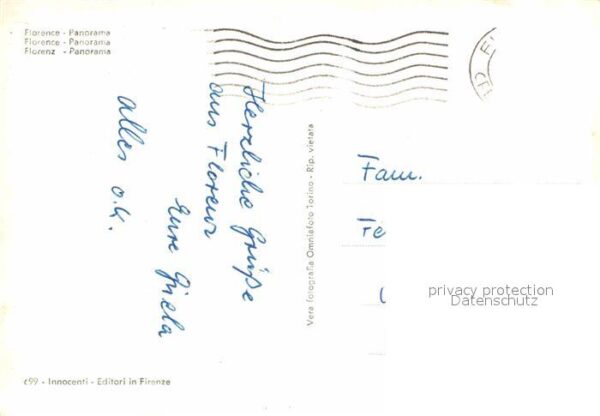 Florence - Panorama
Florence - Panorama
Florenz - Panorama
Herzliche Grüße
aus Florenz
Eure Gisela
alles o.k.
Vera fotografia Omniafoto Torino - Rip. vietata
Fam.
privacy protection
Datenschutz
699 - Innocenti - Editori in Firenze